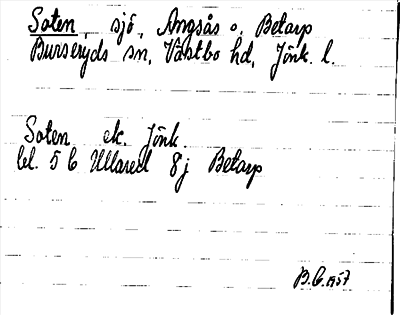 Soten, sjö, Ängsås o. Betarp
Burseryds sn, Västbo hd, Jönk. l.
Soten ek. Jönk.
bl. 5 C Ullared 8j Betarp
B.G. 1957